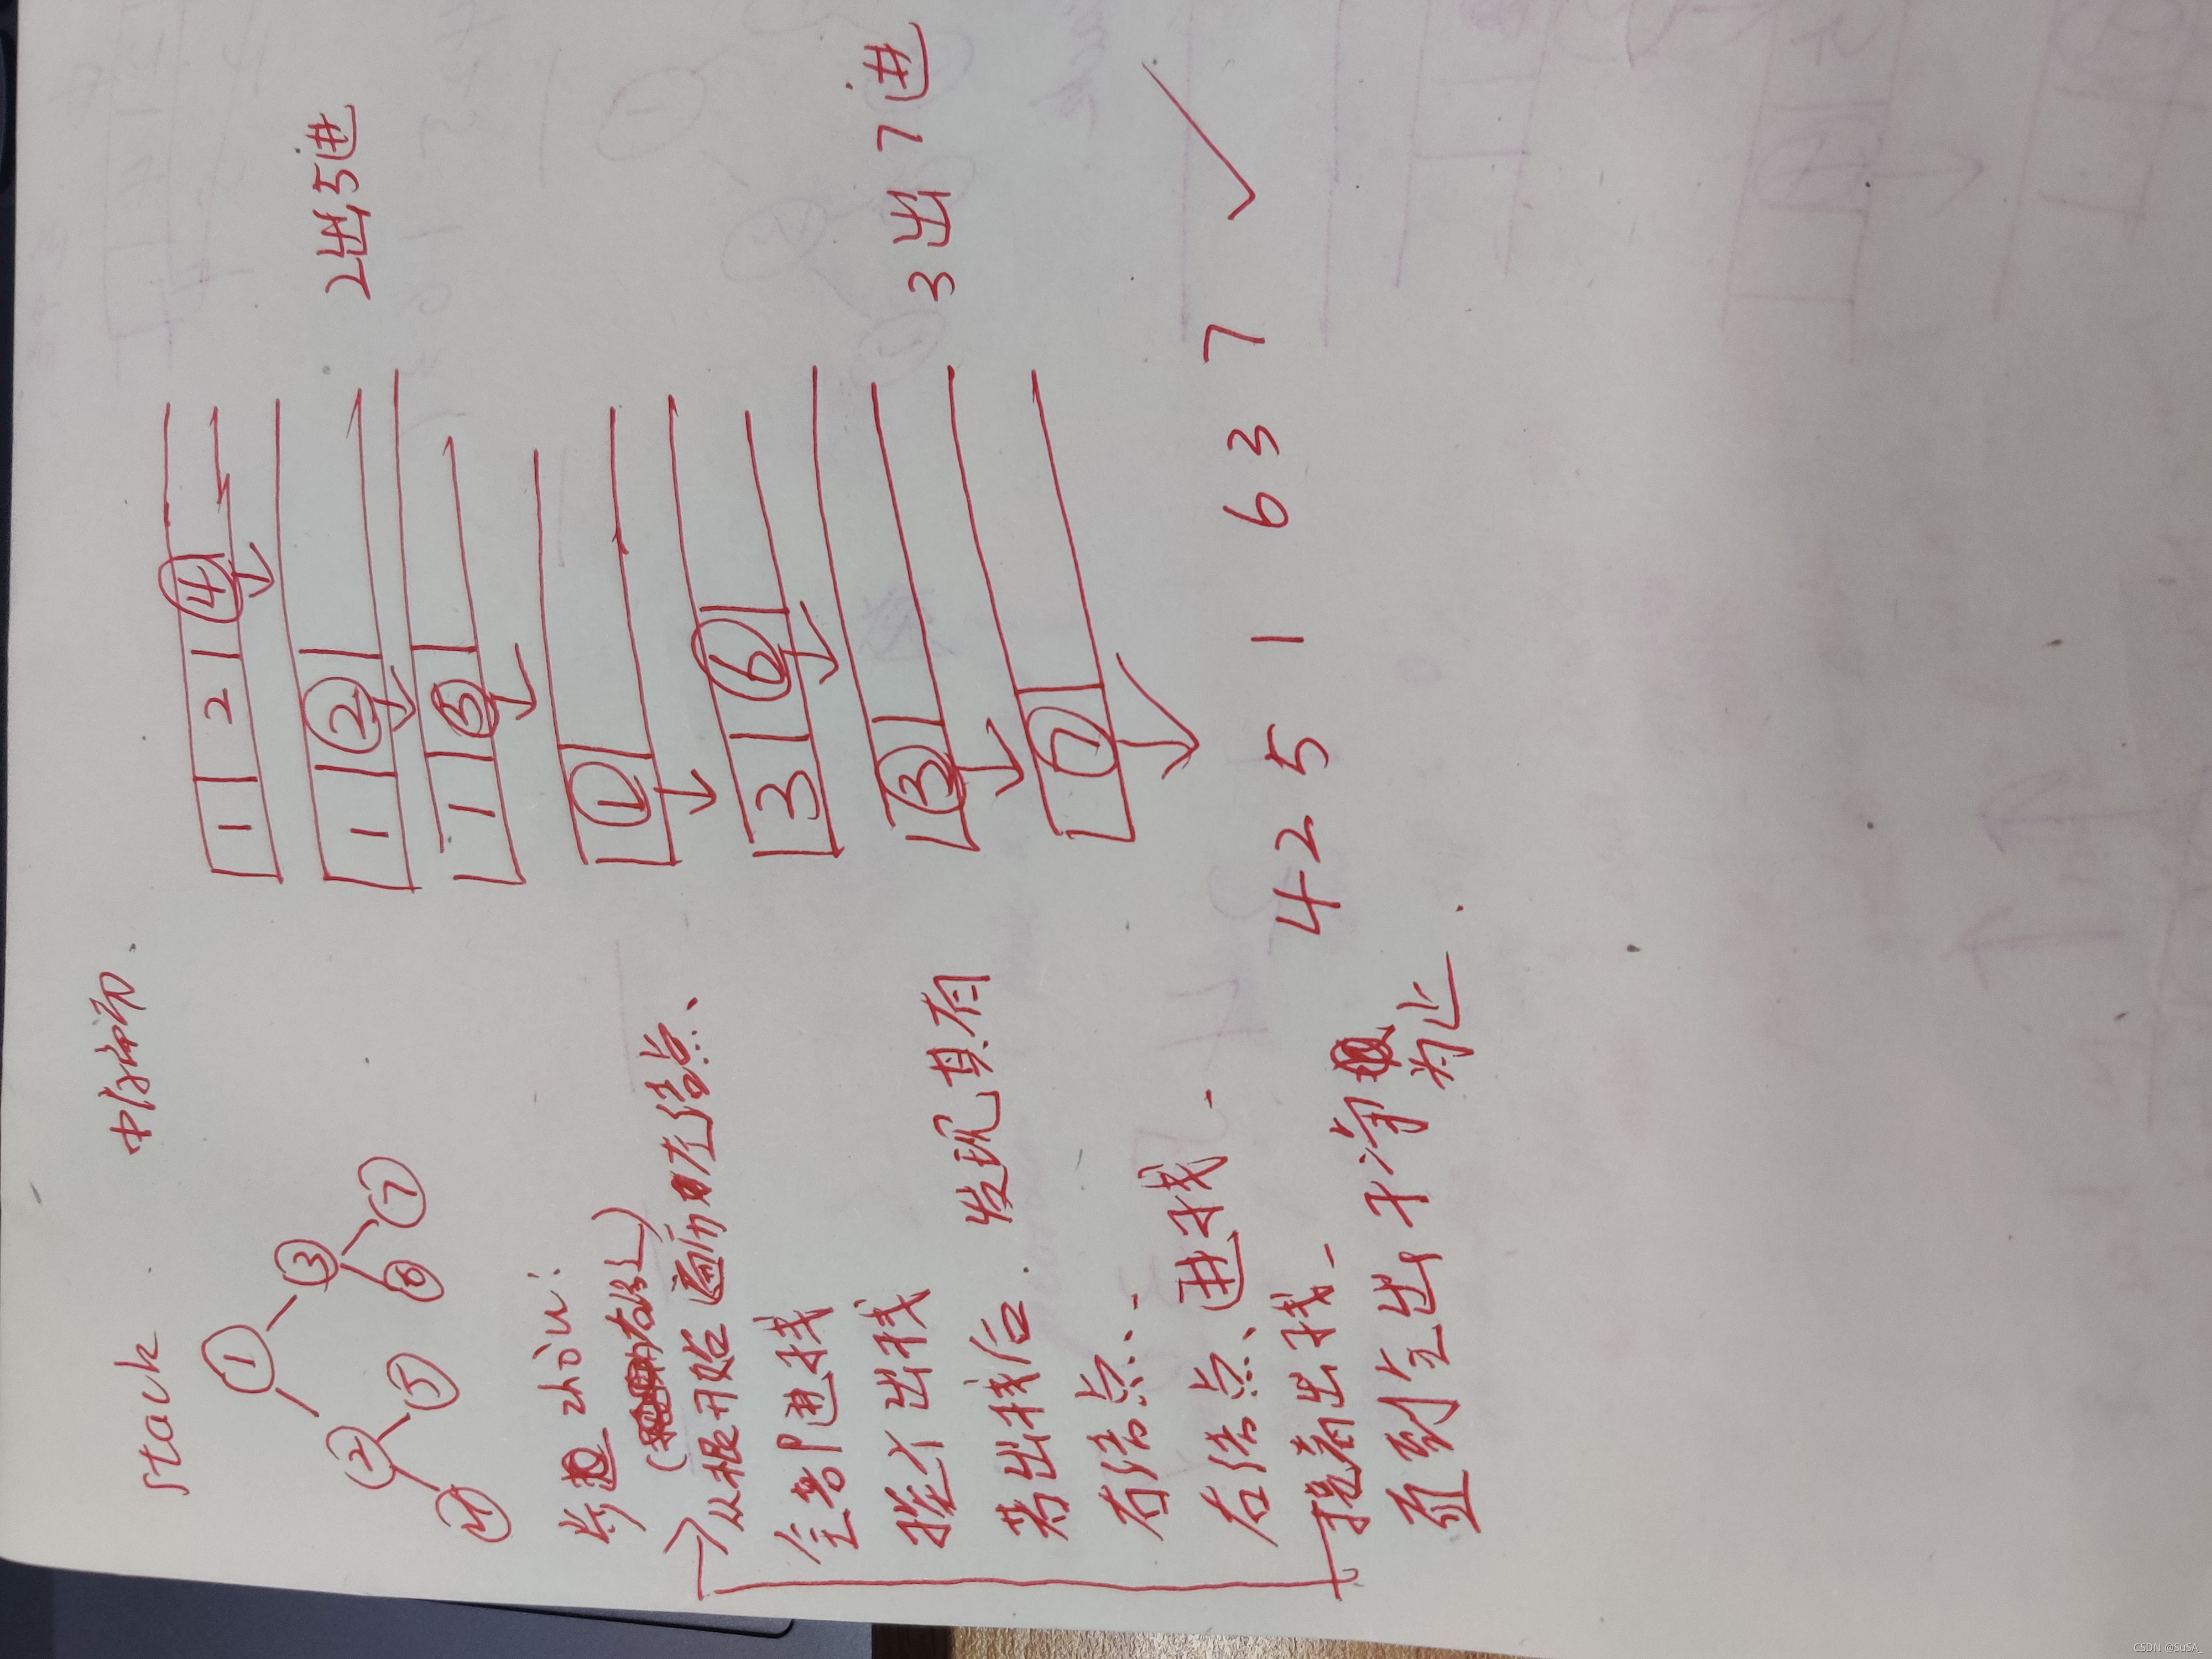 stack 中序遍历.
1
2 3
4 5 6 7
思路 zhòu:
(右结)
从根开始遍历左结点、
全部进栈
挨个出栈
若出栈后发现其有
右结点.
右结点、进栈.
接着出栈.
直到全出,才算为止.
1 2 4
1 2 2出,5进
1 5
1
3 6
3 3出7进
7
4 2 5 1 6 3 7
CSDN @SuSA